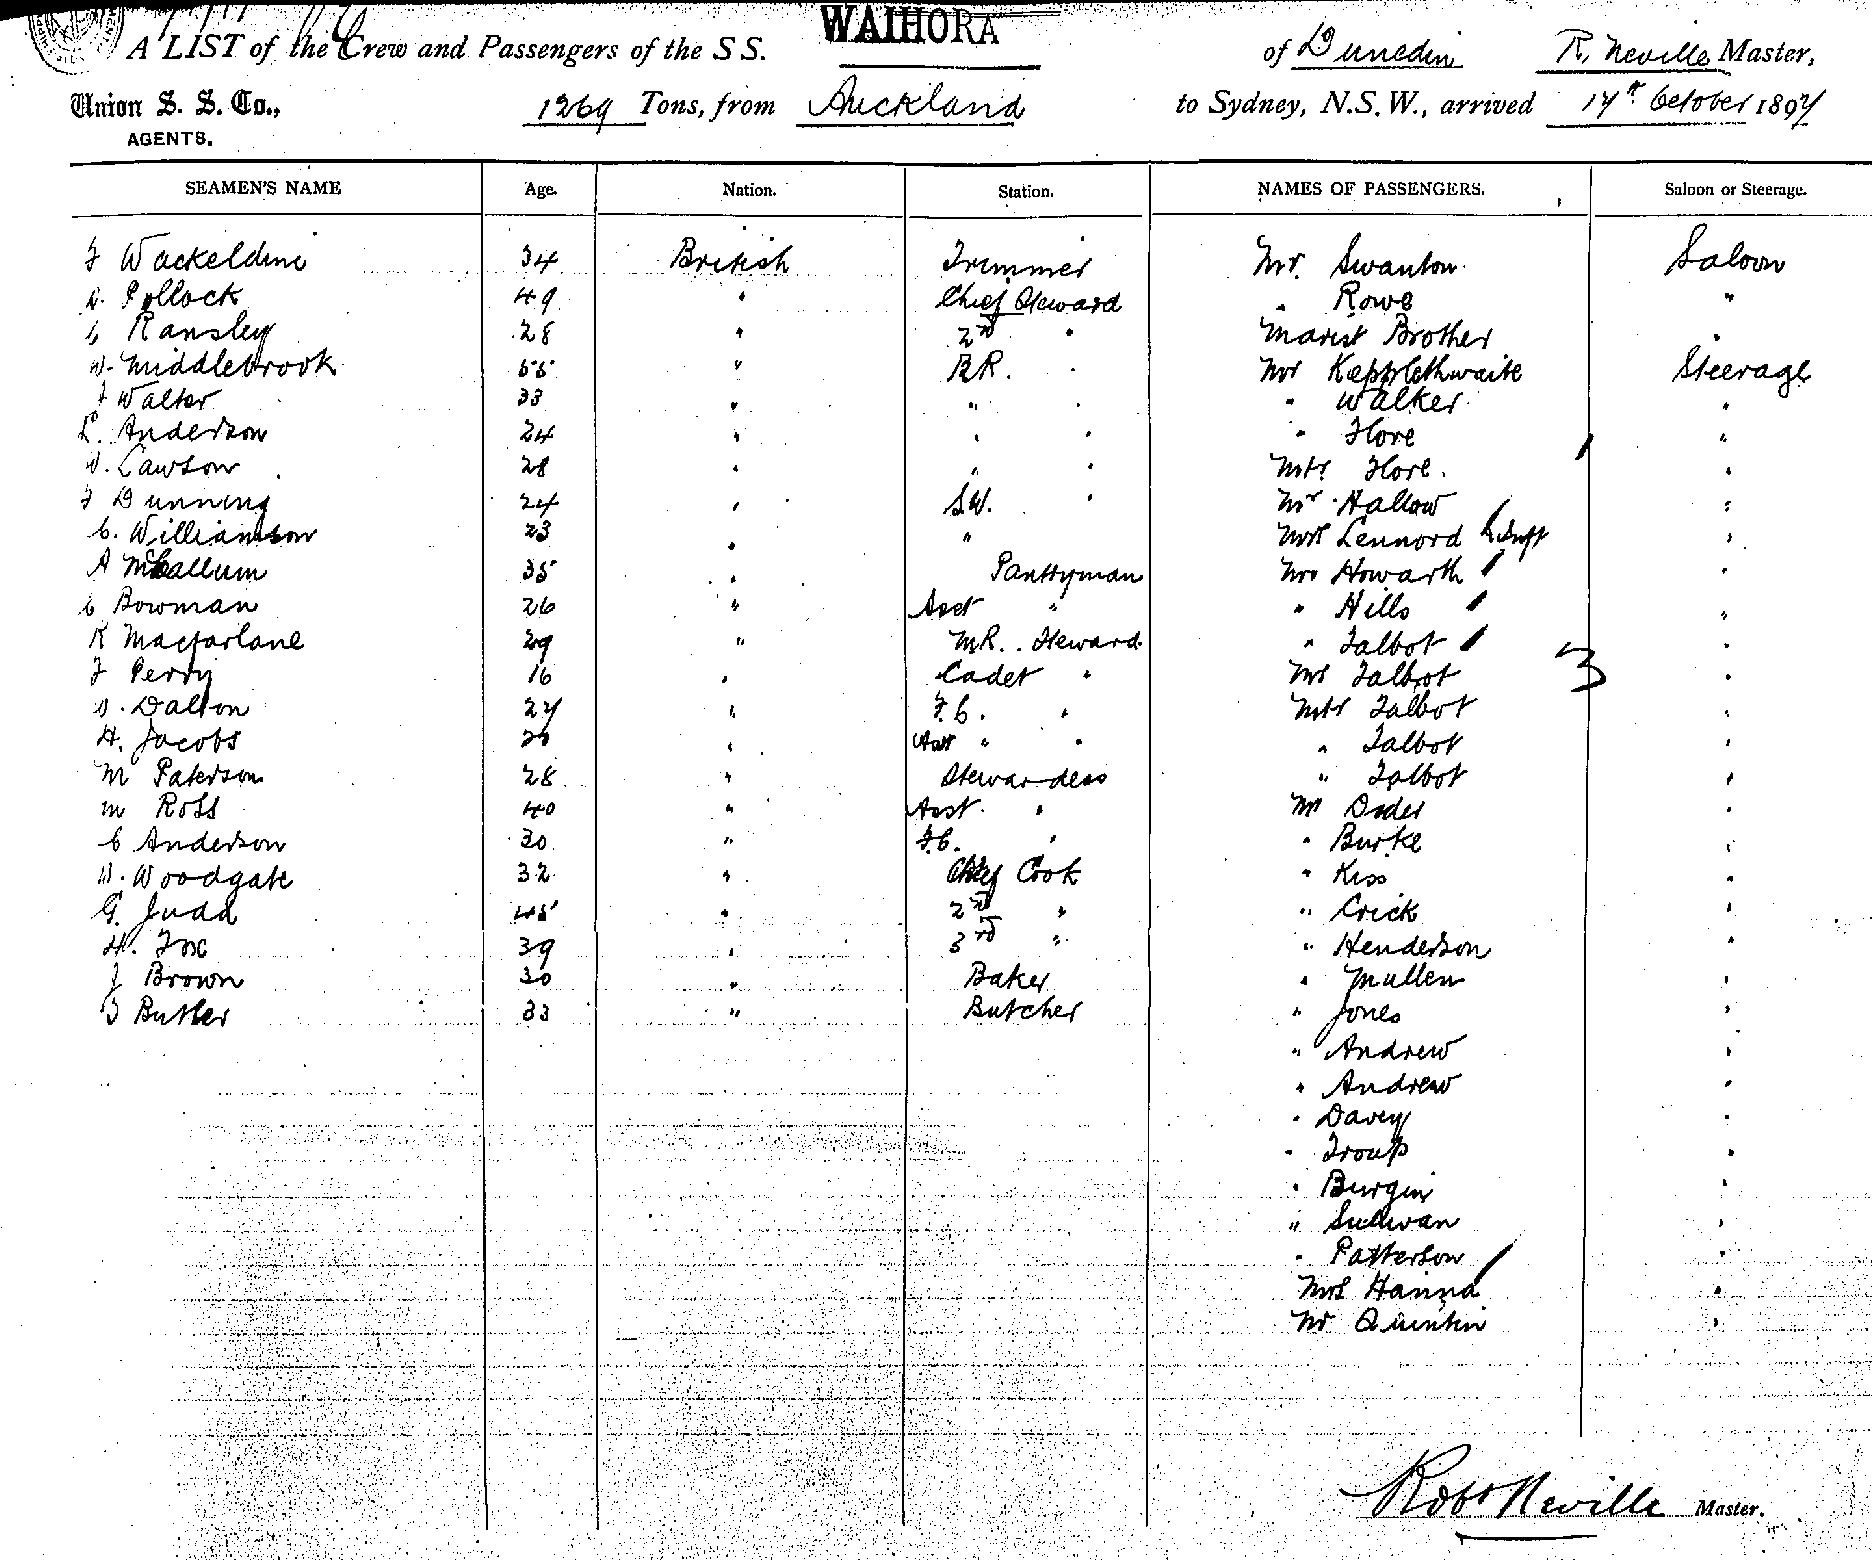 WAIHORA
A LIST of the Crew and Passengers of the S S. of Dunedin R. Neville Master,
Union S. S. Co., 1269 Tons, from Auckland to Sydney, N.S.W., arrived 17th October 1897
AGENTS.
SEAMEN'S NAME Age. Nation. Station. NAMES OF PASSENGERS. Saloon or Steerage.
34 British Trimmer Mr. Swanton Saloon
Pollock 49 " Chief Steward " Rowe "
Ransley 28 " 2nd " Marist Brother "
W. Middlebrook 55 " B.R. " Mr Kepplethwaite Steerage
Walter 33 " " " " Walker "
L. Anderson 24 " " " " Hore "
W. Lawson 28 " " " Mrs Hore. "
F Dunning 24 " S.W. " Mr Hallow "
C. Williamson 23 " " Mrs Lennord & Inft "
A McCallum 35 " Pantryman Mrs Howarth "
C Bowman 26 " Asst " " Hills "
R Macfarlane 29 " M R.. Steward " Talbot "
F Perry 16 " Cadet " Mr Talbot "
Dalton 27 " F.C. " Mr Talbot "
H. Jacobs " Asst " " " Talbot "
M Paterson 28 " Stewardess " Talbot "
M Ross 40 " Asst. " Mr "
C Anderson 30 " F.C. " " Burke "
W. Woodgate 32 " Chief Cook " Kiss "
G. Judd 45 " 2nd " " Crick "
H. Fox 39 " 3rd " " Henderson "
J Brown 30 " Baker " Mullen "
Butler 33 " Butcher " Jones "
" Andrew "
" Andrew "
" Davey "
" Troup "
" Burgin "
" Sullivan "
" Patterson "
Mrs Hanna "
Mr Quintin "
3
Robt Neville Master.